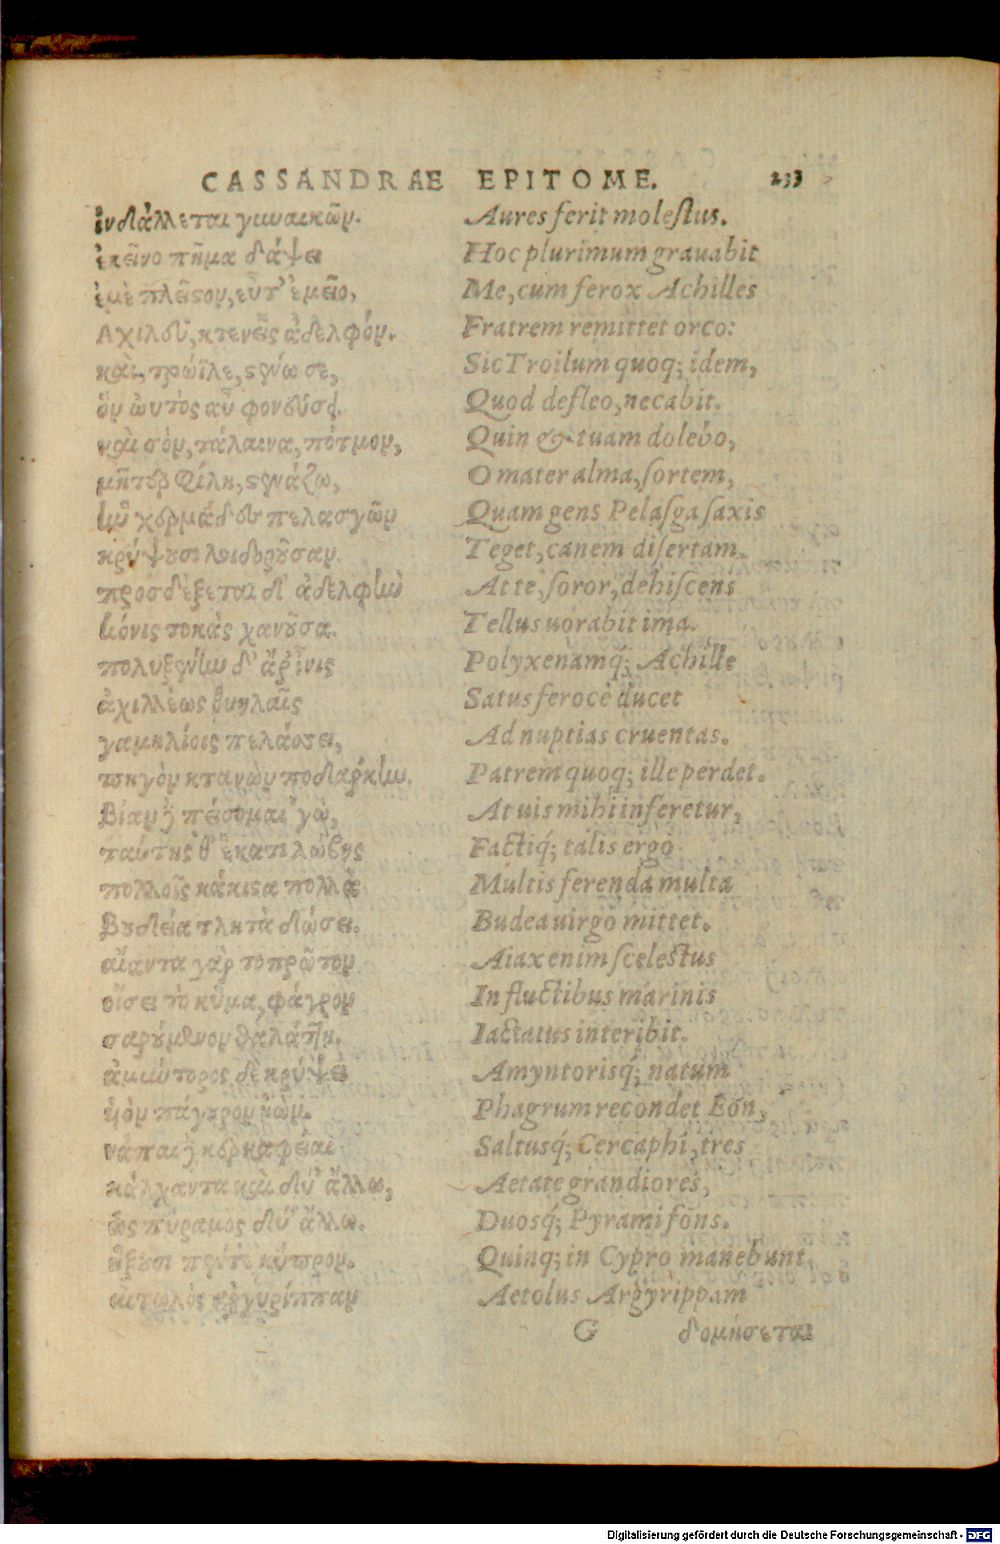 CASSANDRAE EPITOME. 233
ἰνδάλλεται γυναικῶν.
ἐκεῖνο πῆμα δάψει
ἐμὲ πλεῖστον, εὖτ' ἐμεῖο,
Αχιλεῦ, κτενεῖς ἀδελφόν.
καὶ, τρώϊλε, στένω σε,
ὃν ωὑτὸς αὖ φονεύσει.
καὶ σὸν, τάλαινα, πότμον,
μῆτερ φίλη, στενάζω,
ἣν χερμάδες πελασγῶν
κρύψουσι λοιδοροῦσαν.
προσδέξεται δ' ἀδελφὴν
κόνις χανοῦσα.
πολυξένην δ' ἆρ' ἶνις
ἀχιλλέως θυηλαῖς
γαμηλίοις πελάσσει,
κτανὼν ποδάρκην.
βίαν δὲ πείσομαι 'γὼ,
ταύτης θ' ἕκατι λώβης
πολλοῖς κάκιστα πολλὰ
βυδεία τλητὰ δώσει.
αἴαντα γὰρ τὸ πρῶτον
οἴσει τὸ κῦμα, φάγρον
θαλάττῃ.
ἀμύντορος δὲ κρύψει
ἠϊὸν πάγουρον
νάπαι δὲ κερκαφεῖαι
κάλχαντα καὶ δύ' ἄλλω,
ὡς πύραμος δύ' ἄλλω.
ἥξουσι πέντε κύπρον.
αἰτωλὸς ἀργυρίππαν
Aures ferit molestus.
Hoc plurimum grauabit
Me, cum ferox Achilles
Fratrem remittet orco:
Sic Troilum quoq; idem,
Quod defleo, necabit.
Quin & tuam dolebo,
O mater alma, sortem,
Quam gens Pelasga saxis
Teget, canem disertam.
At te, soror, dehiscens
Tellus uorabit ima.
Polyxenamq́; Achille
Satus feroce ducet
Ad nuptias cruentas.
Patrem quoq; ille perdet.
At uis mihi inferetur,
Factiq́; talis ergo
Multis ferenda multa
Budea uirgo mittet.
Aiax enim scelestus
In fluctibus marinis
Iactatus interibit.
Amyntorisq́; natum
Phagrum recondet Eon,
Saltusq́; Cercaphi, tres
Aetate grandiores,
Duosq́; Pyrami fons.
Quinq; in Cypro manebunt.
Aetolus Argyrippam
G δομήσεται
Digitalisierung gefördert durch die Deutsche Forschungsgemeinschaft - DFG